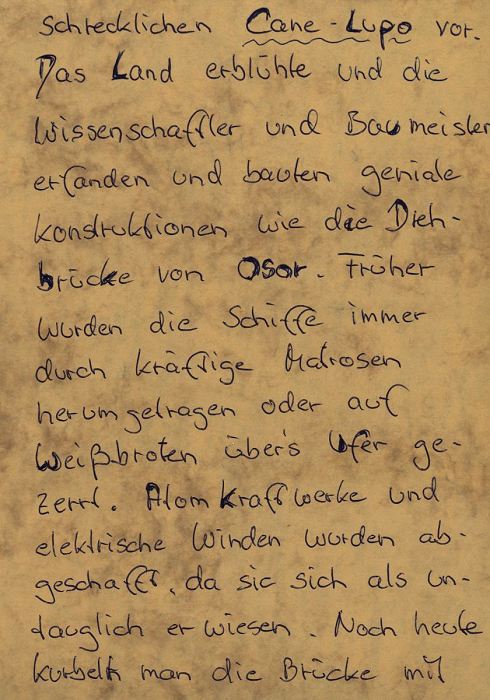 schrecklichen Cane-Lupo vor.
Das Land erblühte und die
Wissenschaftler und Baumeister
erfanden und bauten geniale
Konstruktionen wie die Dreh-
brücke von Osor. Früher
wurden die Schiffe immer
durch kräftige Matrosen
herumgetragen oder auf
Weißbroten über's Ufer ge-
zerrt. Atomkraftwerke und
elektrische Winden wurden ab-
geschafft, da sie sich als un-
tauglich erwiesen. Noch heute
kurbelt man die Brücke mit